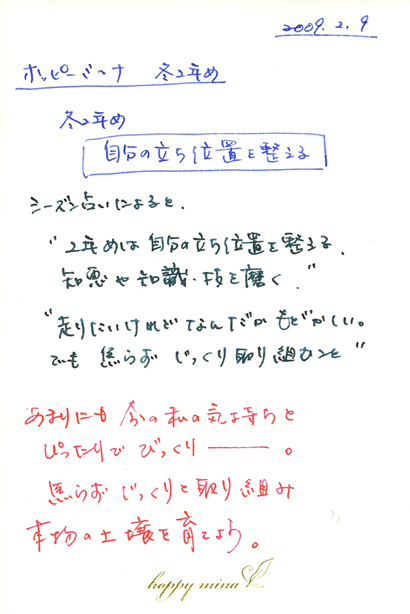 2009. 2. 9
ホッピーミーナ 冬2年め
冬2年め
自分の立ち位置を整える
シーズン占いによると、
"2年めは自分の立ち位置を整える、
知恵や知識・技を磨く。"
"走りたいけれどなんだかもどかしい。
でも 焦らず じっくり取り組むこと"
あまりにも 今の私の気持ちと
ぴったりで びっくり――。
焦らず じっくりと取り組み
本物の土壌を育てよう。
hoppy mina